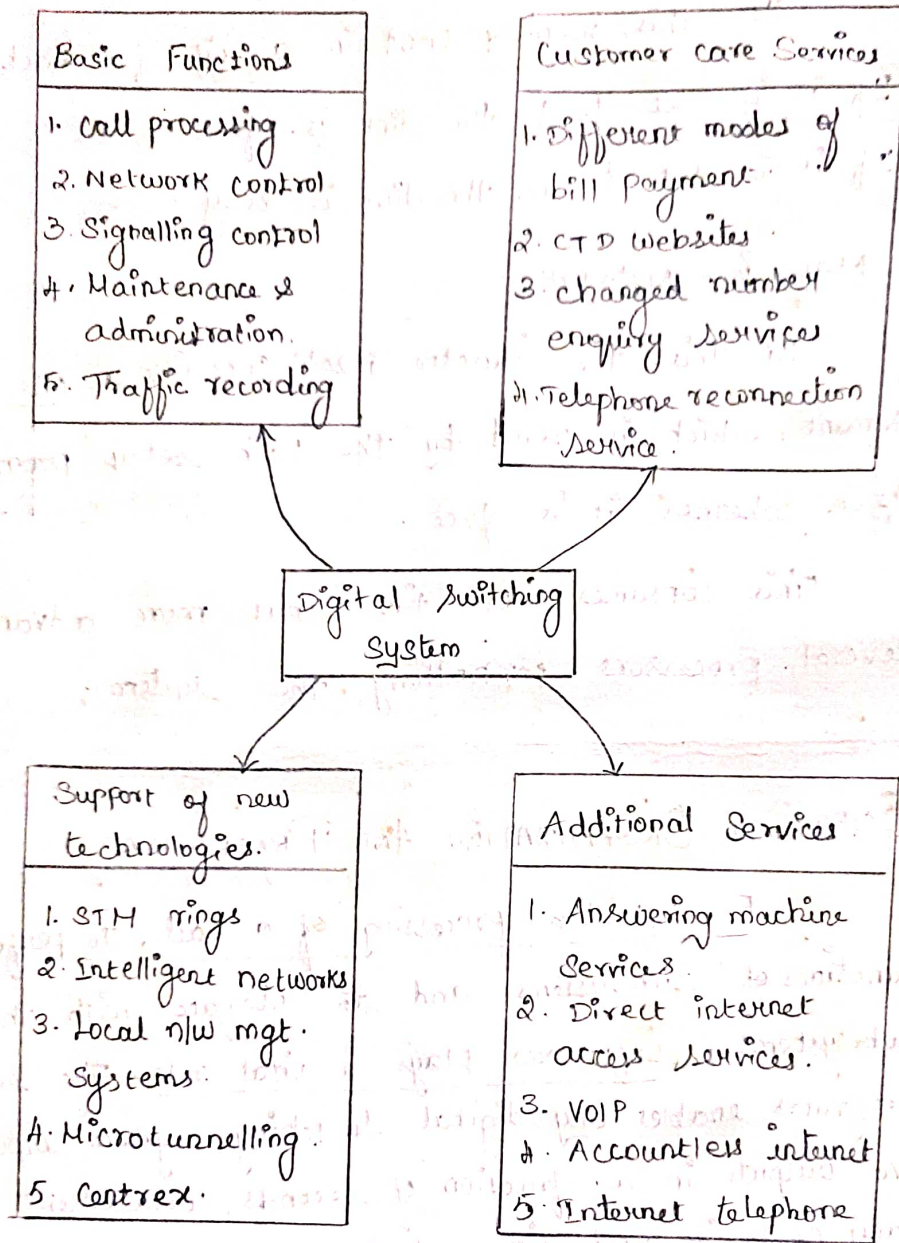 Basic Functions
1. Call processing
2. Network control
3. Signalling control
4. Maintenance &
administration.
5. Traffic recording
Customer care Services
1. Different modes of
bill payment.
2. CTD websites.
3. changed number
enquiry services
4. Telephone reconnection
service.
Digital switching
system.
Support of new
technologies.
1. STM rings
2. Intelligent networks
3. Local n/w mgt.
Systems.
4. Microtunnelling.
5. Centrex.
Additional Services.
1. Answering machine
services.
2. Direct internet
access services.
3. VOIP
4. Accountless internet
5. Internet telephone